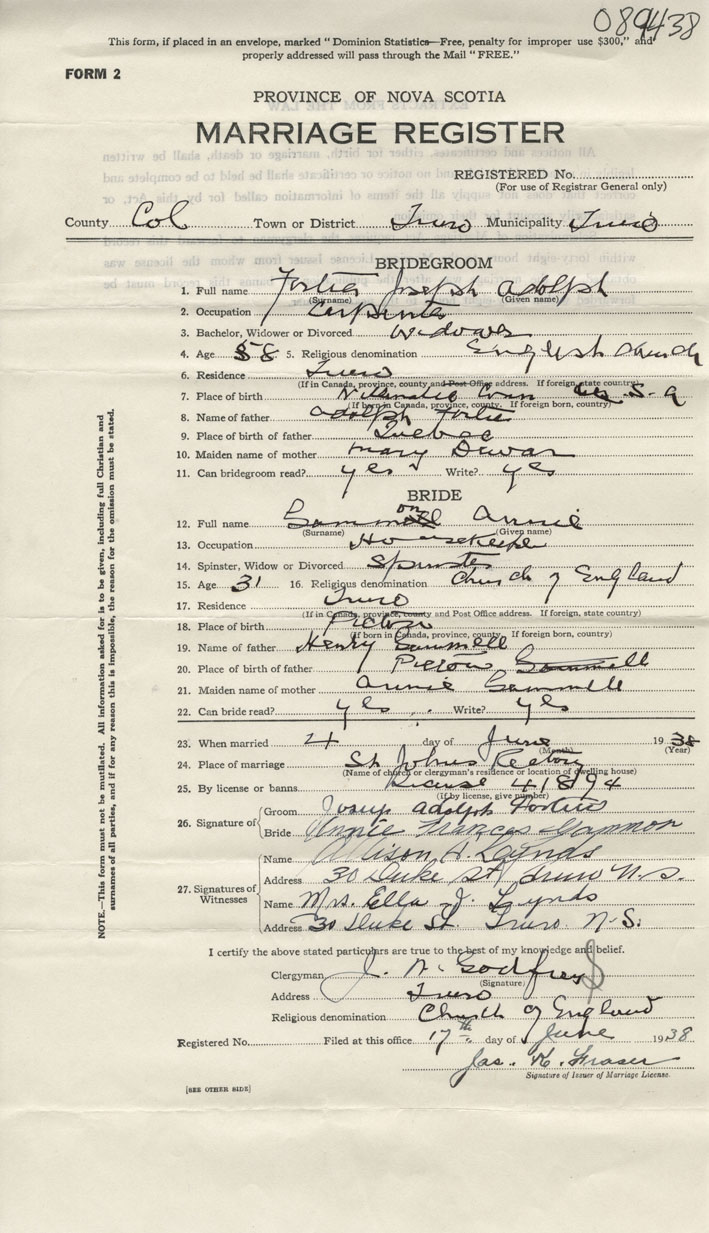 089438
This form, if placed in an envelope, marked "Dominion Statistics—Free, penalty for improper use $300," and
properly addressed will pass through the Mail "FREE."
FORM 2
PROVINCE OF NOVA SCOTIA
MARRIAGE REGISTER
REGISTERED No.
(For use of Registrar General only)
County Col Town or District Truro Municipality Truro
BRIDEGROOM
1. Full name Fortie Joseph Adolph
(Surname) (Given name)
2. Occupation Carpenter
3. Bachelor, Widower or Divorced Widower
4. Age 58 5. Religious denomination English Church
6. Residence Truro
(If in Canada, province, county and Post Office address. If foreign, state country)
7. Place of birth Conn U.S.A
(If born in Canada, province, county. If foreign born, country)
8. Name of father Adolph Fortie
9. Place of birth of father Quebec
10. Maiden name of mother Mary Dewar
11. Can bridegroom read? yes Write? yes
BRIDE
12. Full name Gammon Annie
(Surname) (Given name)
13. Occupation Housekeeper
14. Spinster, Widow or Divorced Spinster
15. Age 31 16. Religious denomination Church of England
17. Residence Truro
(If in Canada, province, county and Post Office address. If foreign, state country)
18. Place of birth Pictou
(If born in Canada, province, county. If foreign born, country)
19. Name of father Henry Gammell
20. Place of birth of father Pictou
21. Maiden name of mother Annie Gammell
22. Can bride read? yes Write? yes
23. When married 4 day of June 1938
(Month) (Year)
24. Place of marriage St Johns Rectory
(Name of church or clergyman's residence or location of dwelling house)
25. By license or banns License 41894
(If by license, give number)
26. Signature of Groom Adolph Forties
Bride Annie Frances Gammon
27. Signatures of Witnesses Name A. Lynds
Address 30 Duke St Truro N.S.
Name Mrs. Ella J. Lynds
Address 30 Duke St. Truro. N.S.
I certify the above stated particulars are true to the best of my knowledge and belief.
Clergyman J. W. Godfrey
(Signature)
Address Truro
Religious denomination Church of England
Registered No. Filed at this office 17th day of June 1938
Jas. K. Fraser
Signature of Issuer of Marriage License.
[SEE OTHER SIDE]
NOTE.—This form must not be mutilated. All information asked for is to be given, including full Christian and
surnames of all parties, and if for any reason this is impossible, the reason for the omission must be stated.